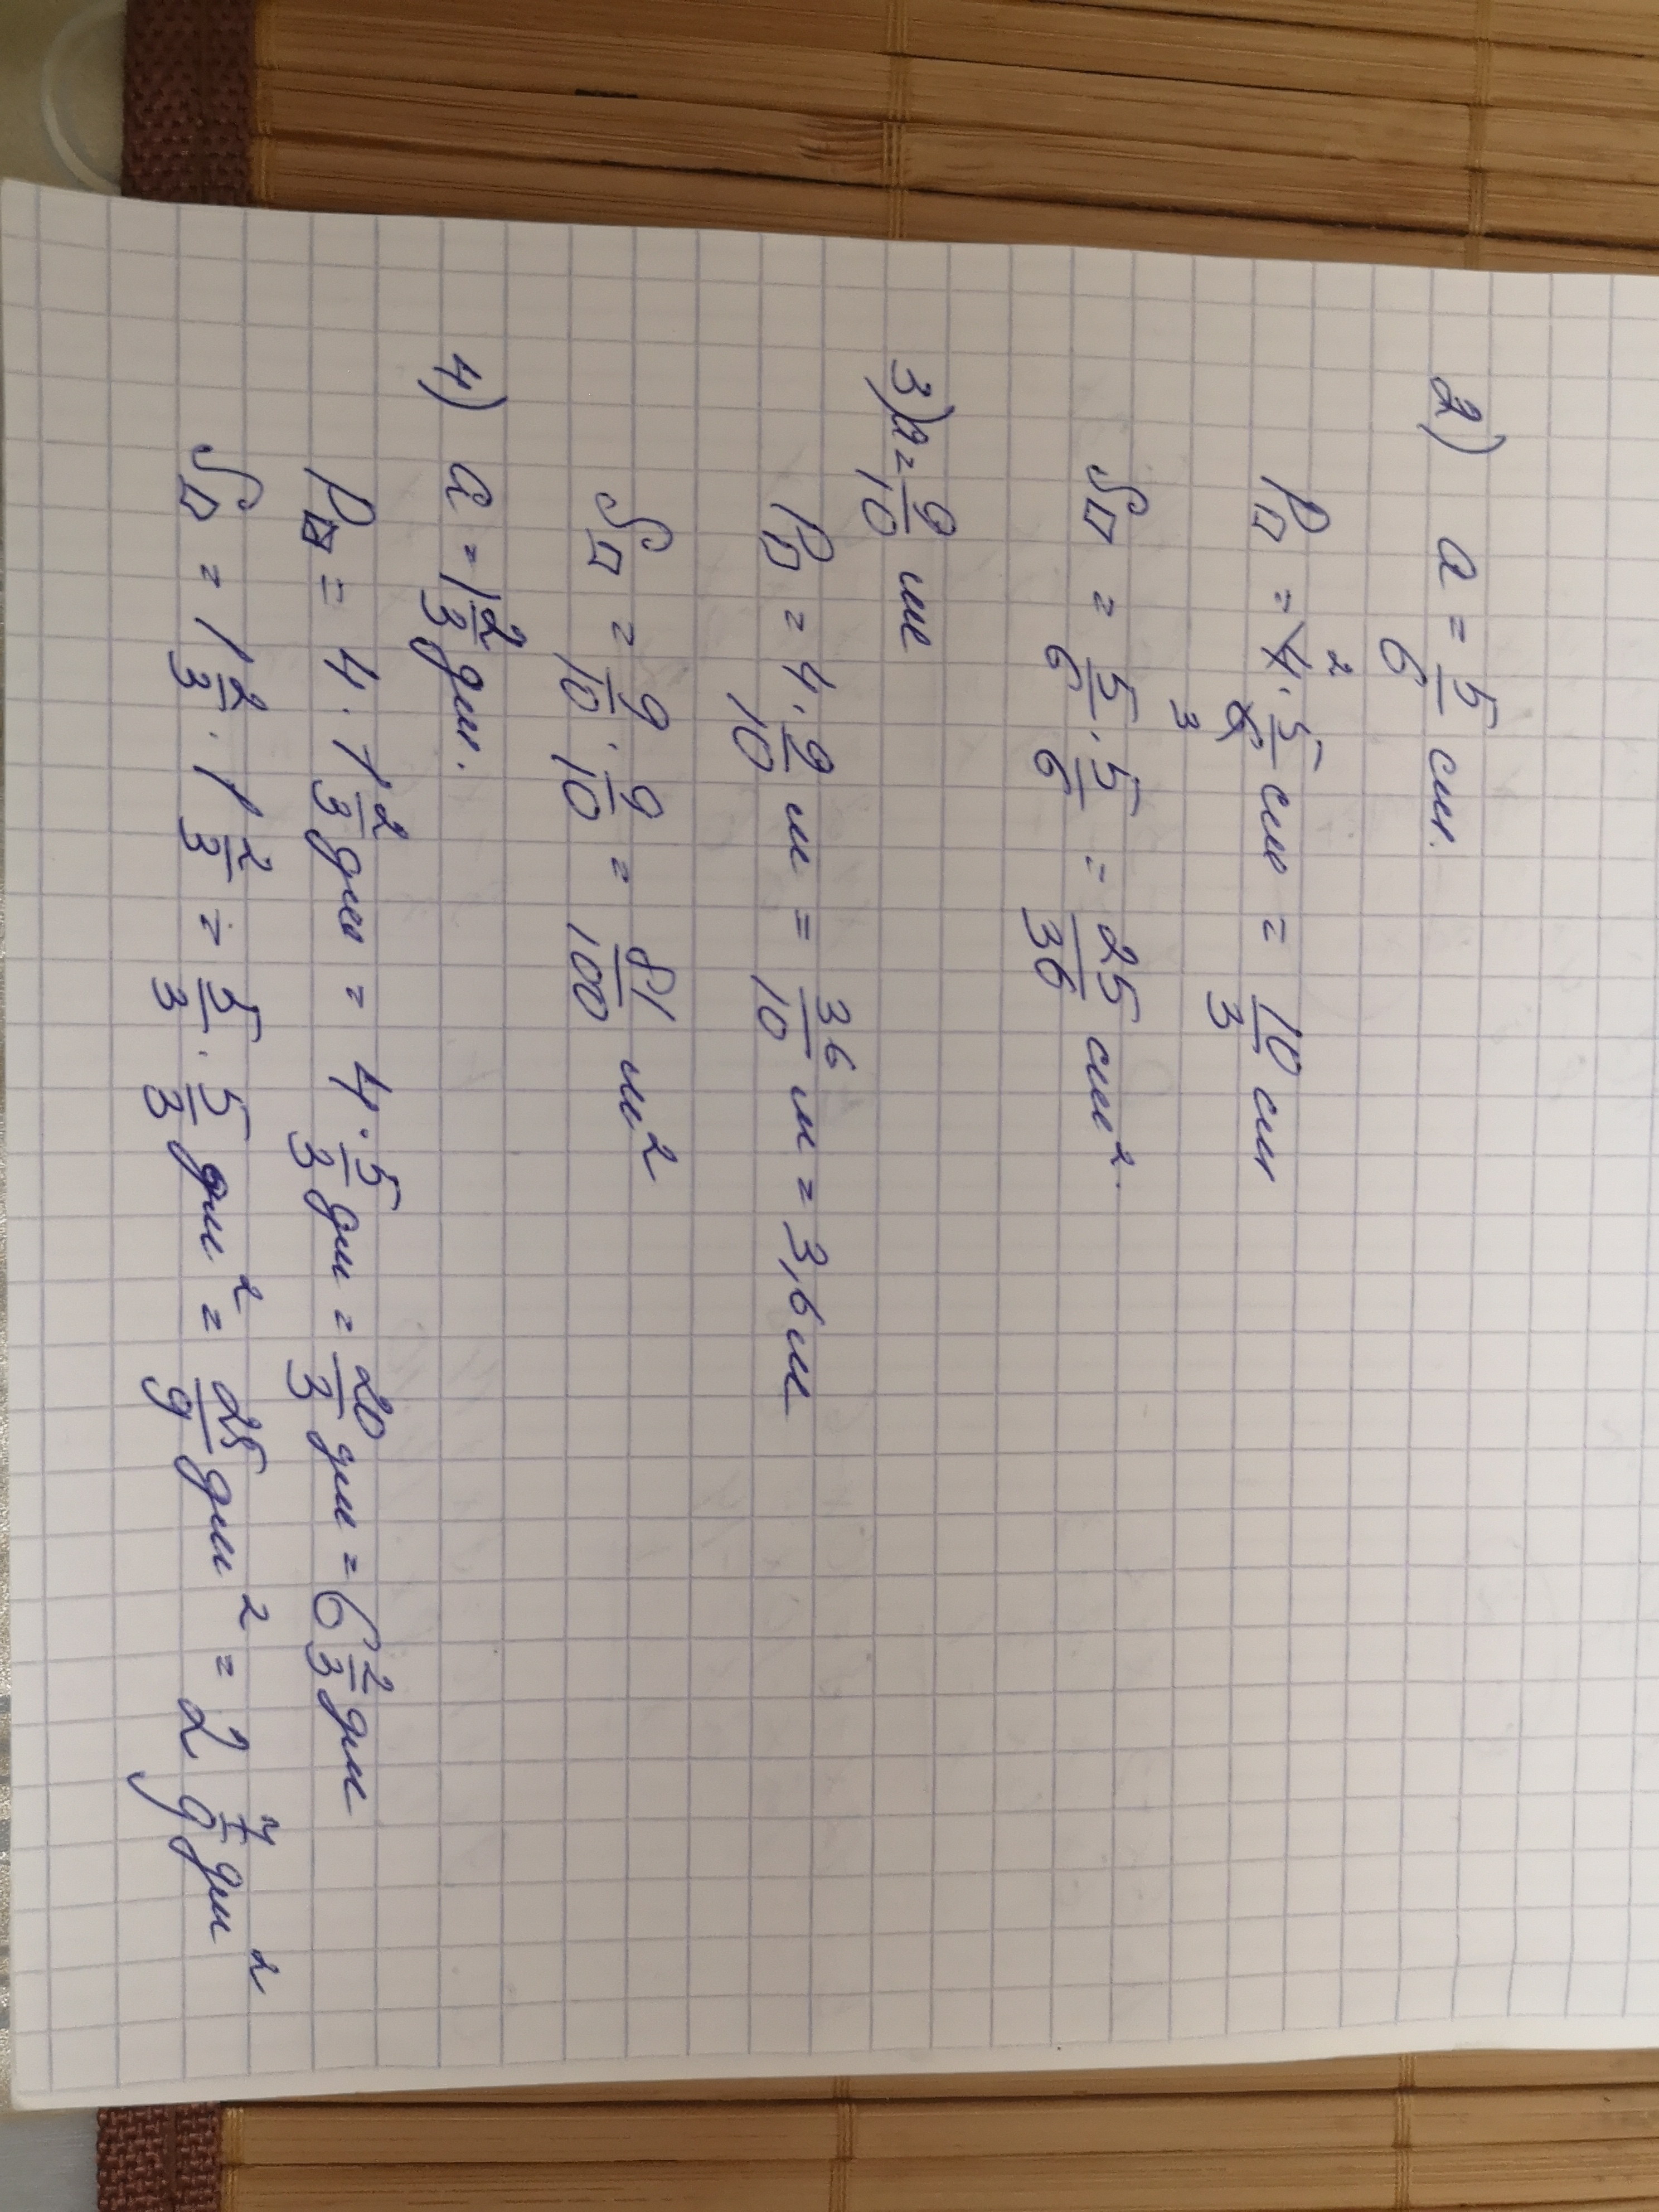 2) a = 5/6 см.
P□ = 4̸² · 5/6̸₃ см = 10/3 см
S□ = 5/6 · 5/6 = 25/36 см².
3) a = 9/10 м
P□ = 4 · 9/10 м = 36/10 м = 3,6 м
S□ = 9/10 · 9/10 = 81/100 м²
4) a = 1 2/3 дм.
P□ = 4 · 1 2/3 дм = 4 · 5/3 дм = 20/3 дм = 6 2/3 дм
S□ = 1 2/3 · 1 2/3 = 5/3 · 5/3 дм² = 25/9 дм² = 2 7/9 дм²